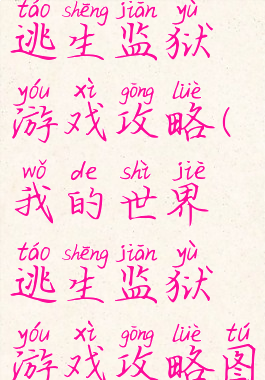 táo shēng jiān yù
逃生监狱
yóu xì gōng lüè
游戏攻略(
wǒ de shì jiè
我的世界
táo shēng jiān yù
逃生监狱
yóu xì gōng lüè tú
游戏攻略图